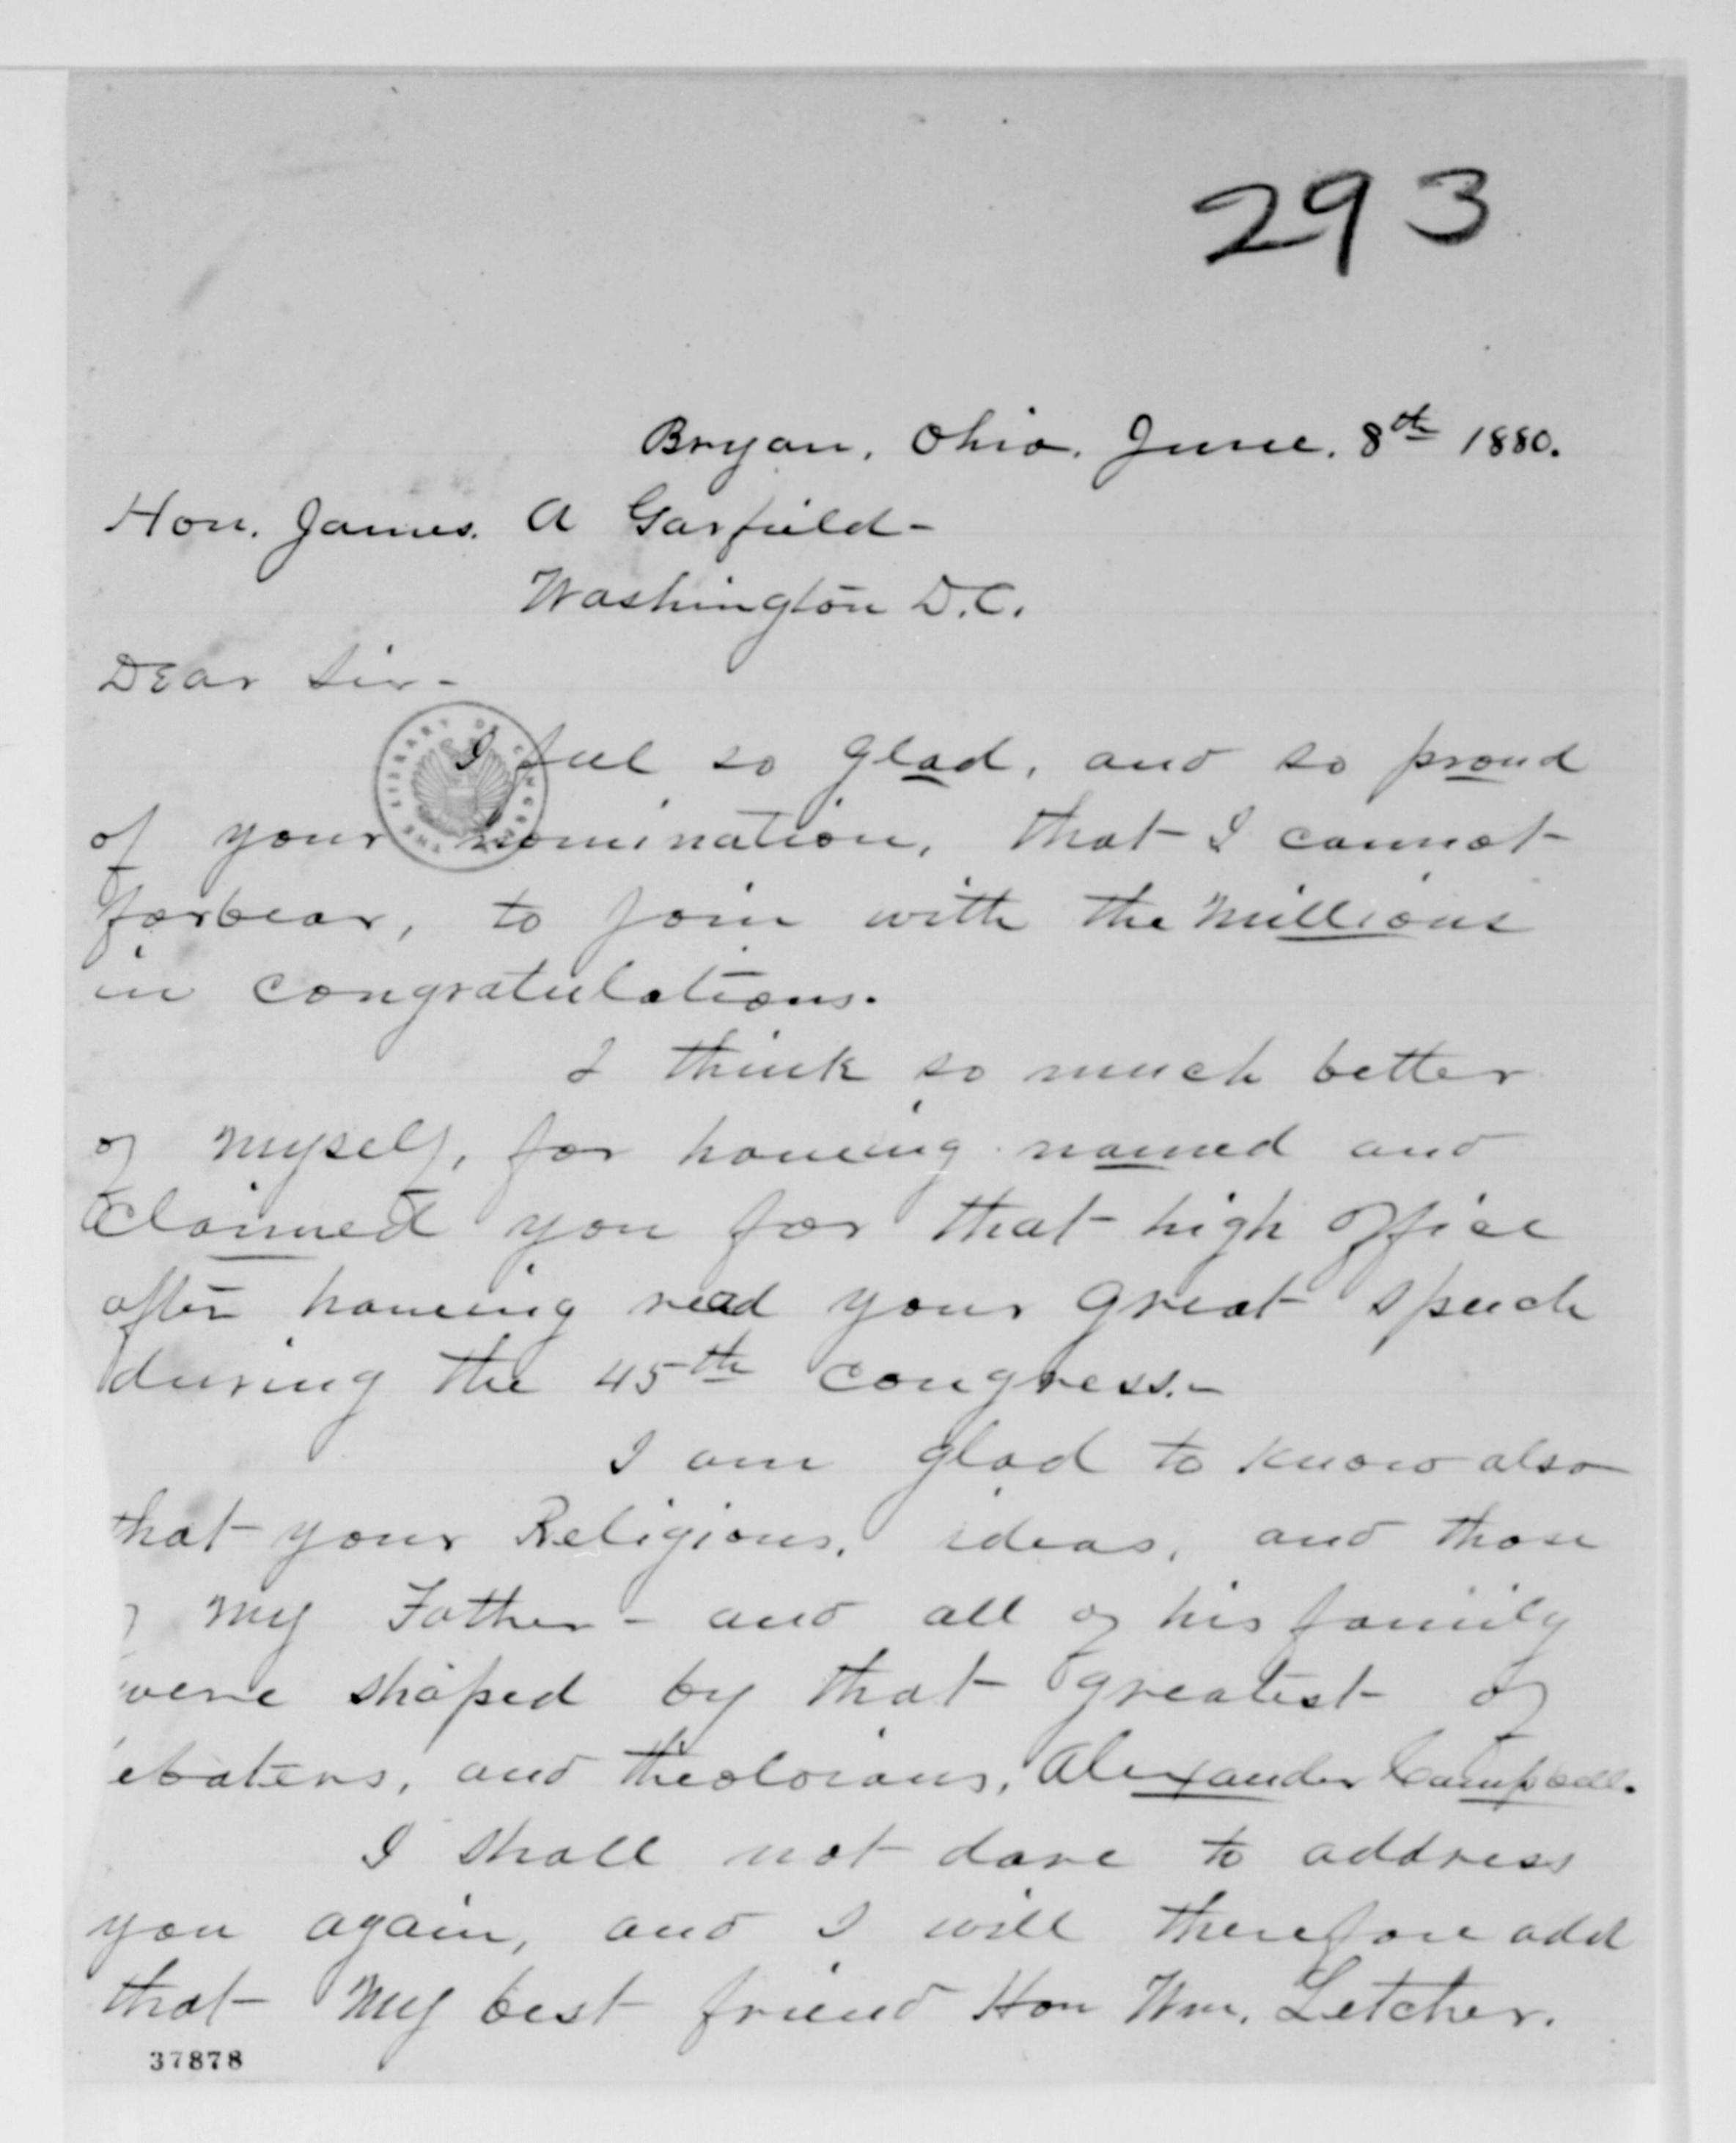 293
Bryan, Ohio. June. 8th 1880.
Hon. James. A Garfield-
Washington D.C.
Dear Sir-
I feel so glad, and so proud
of your nomination, that I cannot
forbear, to join with the millions
in congratulations.
I think so much better
of myself, for haveing named and
claimed you for that high office
after haveing read your great speech
during the 45th Congress.-
I am glad to know also
that your Religious, ideas, and those
of my Father- and all of his family
were shaped by that greatest of
ebaters, and theoloians, Alexander Campbell.
I shall not dare to address
you again, and I will therefore add
that my best friend Hon Wm. Letcher.
37878
THE LIBRARY OF CONGRESS